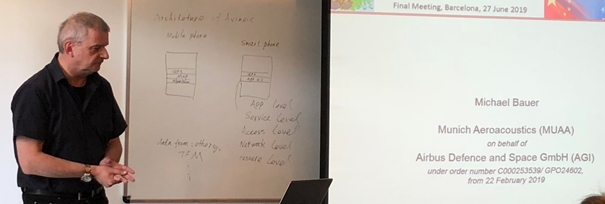 Architecture of
Mobile phone
Smart phone
App Level
Service Level
Access Level
Network Level
Level
Data from
Final Meeting, Barcelona, 27 June 2019
Michael Bauer
Munich Aeroacoustics (MUAA)
on behalf of
Airbus Defence and Space GmbH (AGI)
under order number C000253539/ GPO24602,
from 22 February 2019